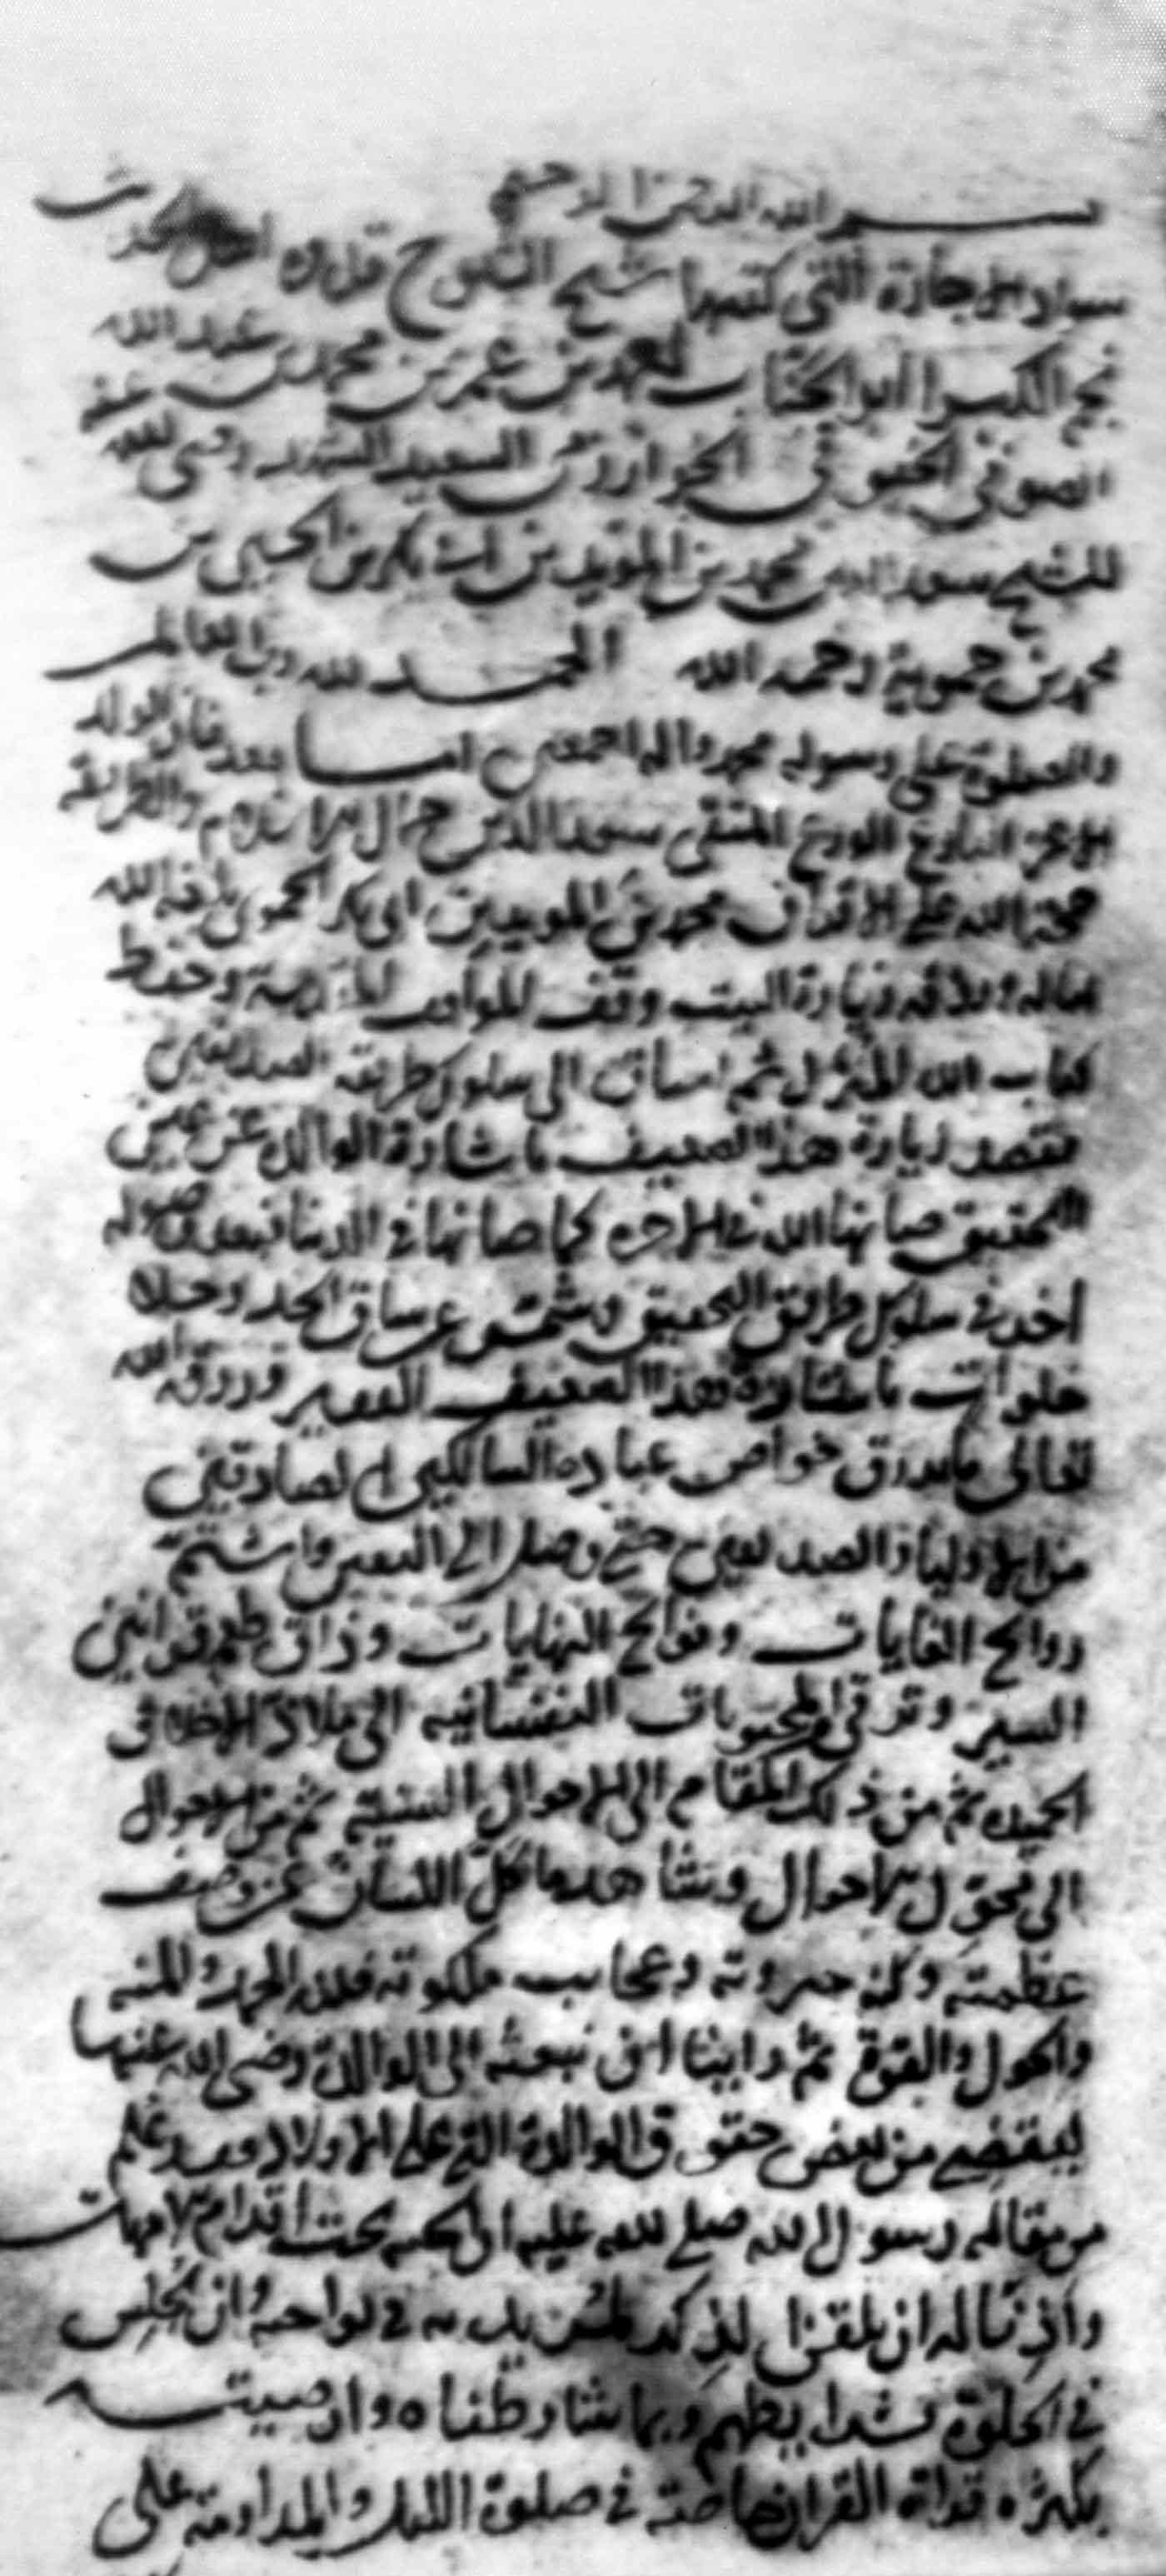 بسم الله الرحمن الرحيم
سواد الاجازة التي كتبها شيخ الشيوخ قدوة
نجم الكبرا ابو الجناب احمد بن عمر بن محمد بن عبد الله
الصوفي الخيوقي الخوارزمي السعيد الشهيد رضى الله عنه
للشيخ سعد الدين محمد بن المؤيد بن ابي بكر بن الحسين بن
محمد بن حموية رحمه الله الحمد لله رب العالمين
والصلوة على رسوله محمد واله اجمعين اما بعد فان الولد
الاعز البارع الورع المتقى سعد الدين جمال الاسلام والطريقة
حجة الله على الاقران محمد بن المويد بن ابى بكر الحموى بلغه الله
اماله رزقه زيارة البيت وقف المواقف وحفظ
كتاب الله المنزل ثم اساق الى سلوك طريقه الصديقين
فقصد زيارة هذا الضعيف باشارة الوالدة عن عين
التحقيق صانها الله في الاخره كما صانها في الدنيا فبعد وصوله
اخذ في سلوك طرايق التحقيق وشمر عن ساق الجد وجلا
خلوات باشارة هذا الضعيف الفقير ورزقه الله
تعالى ما يرزق خواص عباده السالكين الصادقين
من الاوليا والصديقين حتى وصل الى اليقين واشتم
روايح الغايات وفوايح النهايات وذاق طعم قوانين
السير وترقى المحبوبات النفسانيه الى ملاذ الاخلاق
الحميده ثم من ذلك المقام الى الاحوال السنية ثم من الاحوال
الى محول الاحوال وشاهد ما كل اللسان عن وصف
عظمته وكنه جبروته وعجايب ملكوته فلله الحمد والمنه
والحول والقوة ثم راينا ان نبعثه الى الوالدة رضى الله عنها
ليقضي من بعض حقوق الوالدة التي على الاولاد وقد علم
من مقالة رسول الله صلى الله عليه ان الجنه تحت اقدام الامهات
واذنا له ان يلقن الذكر لمن يريد به في نواحيه وان يجلس
في الخلوة بشرايطهم وبما شارطناه واوصيته
بكثره قراة القران خاصة في صلوة الليل والمداومة على